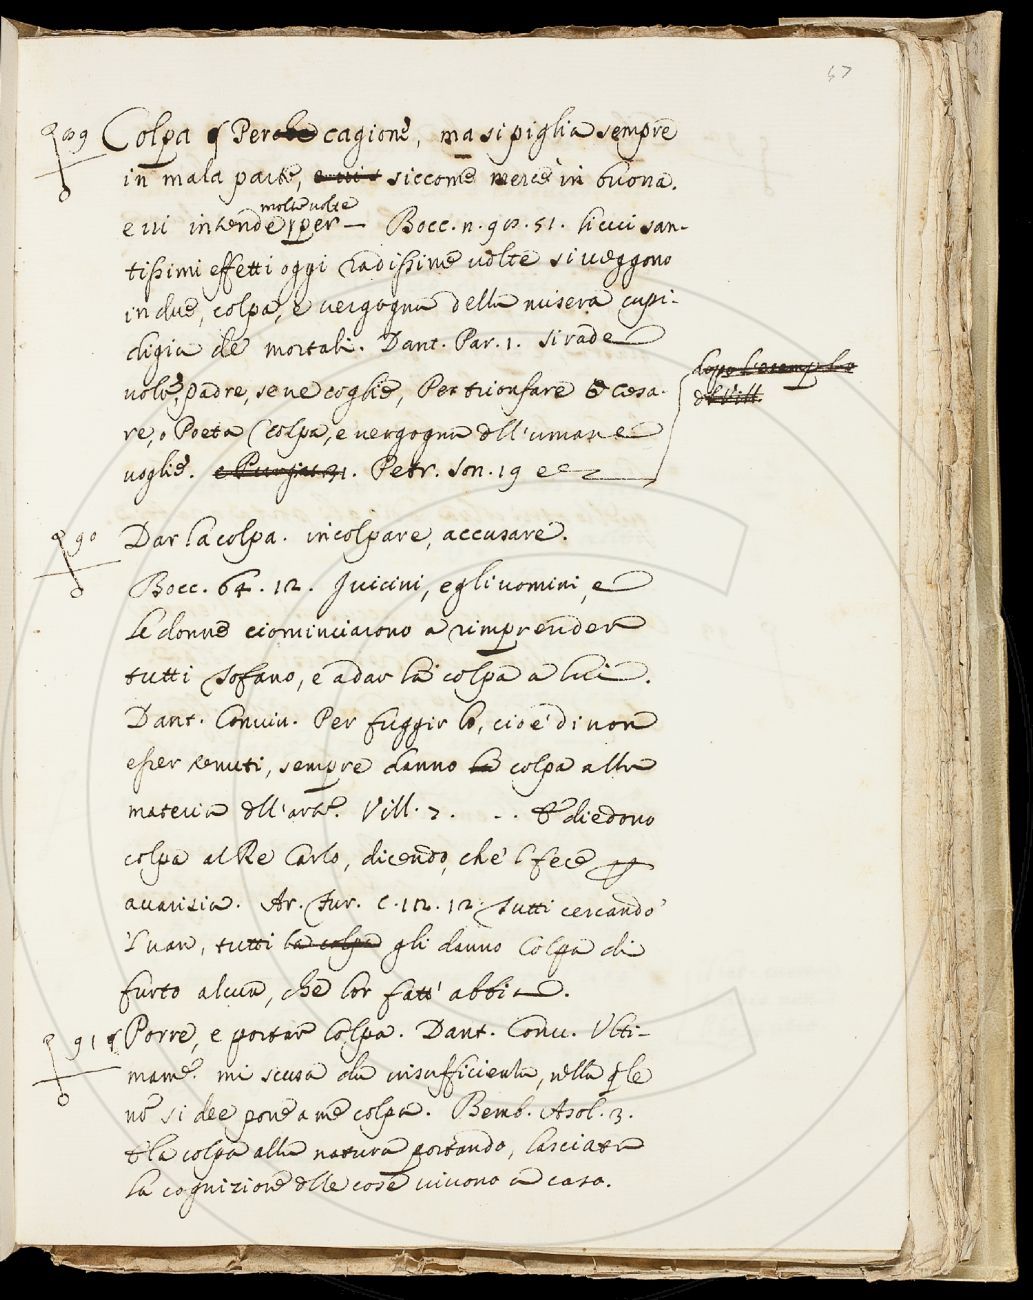 57
89 Colpa ꝑ Per cagione, ma si piglia sempre
in mala parte, siccome mercè in buona.
molte volte
e vi intende per — Bocc. n. 98. 51. li cui san-
tissimi effetti oggi radissime volte si veggono
in due, colpa, e vergogna della misera cupi-
digia de mortali. Dant. Par. 1. si rade
volte, padre, se ne coglie, Per trionfare o Cesa-
re, o Poeta Colpa, e vergogna dell'umane
voglie. e Purgat. 31. Petr. Son. 19 e
dopo l'esemplo
del Vill.
90 Dar la colpa. incolpare, accusare.
Bocc. 64. 12. I vicini, e gli uomini, e
le donne ciominciarono a riprender
tutti Tofano, e a dar la colpa a lui.
Dant. Conviv. Per fuggir lo, cioè di non
esser tenuti, sempre danno la colpa alla
materia dell'arte. Vill. 7. . . E diedono
colpa al Re Carlo, dicendo, che 'l fece ꝑ
avarizia. Ar. Fur. C. 12. 12. Tutti cercando
'l van, tutti la colpa gli danno Colpa di
furto alcun, che lor fatt' abbia.
91 Porre, e portar Colpa. Dant. Conv. Ulti-
mame. mi scusa da insufficienta, nella qle
nō si dee pone a me colpa. Bemb. Asol. 3.
E la colpa alla natura portando, lasciata
la cognizione delle cose vivono a caso.